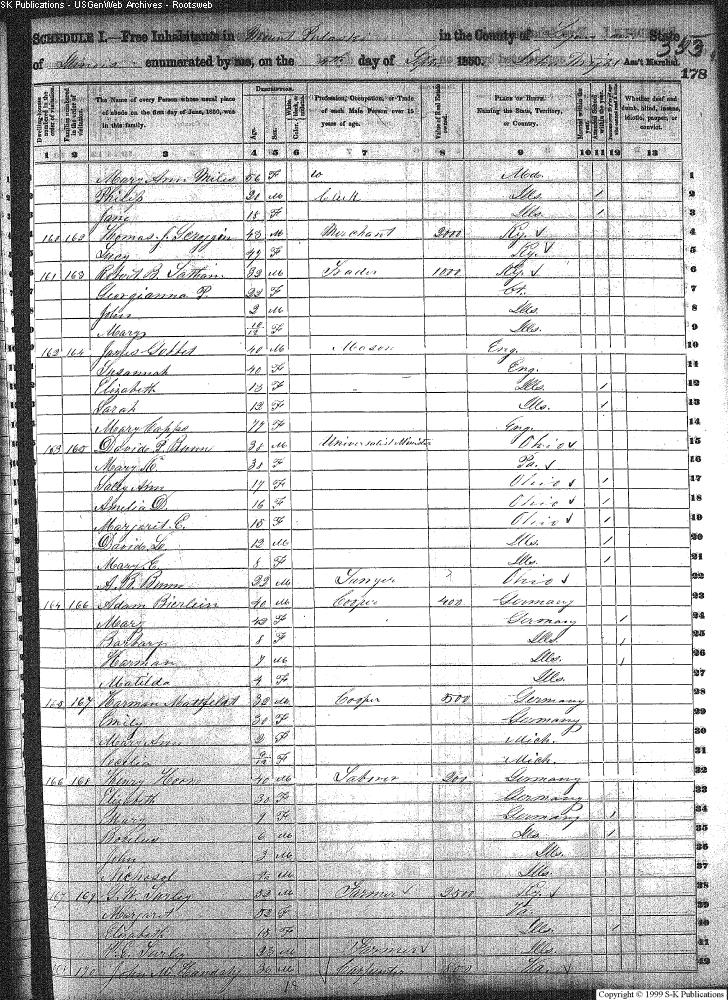 SK Publications - USGenWeb Archives - Rootsweb
SCHEDULE I.—Free Inhabitants in Mount Pulaski in the County of Logan State
of Illinois enumerated by me, on the day of 1850. Ass't Marshal.
353
178
DESCRIPTION.
Dwelling-houses numbered in the order of visitation.
Families numbered in the order of visitation.
The Name of every Person whose usual place of abode on the first day of June, 1850, was in this family.
Age.
Sex.
Profession, Occupation, or Trade of each Male Person over 15 years of age.
Value of Real Estate owned.
PLACE OF BIRTH. Naming the State, Territory, or Country.
Whether deaf and dumb, blind, insane, idiotic, pauper, or convict.
1 2 3 4 5 6 7 8 9 10 11 12 13
Mary Ann Miles 56 F Md. 1
Philip 20 M Clerk Ills. 2
Jane 18 F Ills. 3
160 162 Thomas J. Scroggin 43 M Merchant 2000 Ky. 4
Lucy F Ky. 5
161 163 Robert B. Latham 32 M Trader 1000 Ky. 6
Georgianna P. 22 F Ct. 7
John 2 M Ills. 8
Mary 10/12 F Ills. 9
162 164 James 40 M Mason Eng. 10
Susannah 40 F Eng. 11
Elizabeth 13 F Ills. 12
Sarah 12 F Ills. 13
Mary Capps F Eng. 14
163 165 David P. Bunn 38 M Universalist Minister Ohio 15
Mary 38 F Pa. 16
Sally Ann 17 F Ohio 17
Amelia D. 16 F Ohio 18
Margaret E. 15 F Ohio 19
David L. 12 M Ills. 20
Mary E. 8 F Ills. 21
A. B. Bunn 22 M Ohio 22
164 166 Adam Bierlein 40 M Cooper 400 Germany 23
Mary 42 F Germany 24
Barbary 8 F Ills. 25
Harman 7 M Ills. 26
Matilda 4 F Ills. 27
165 167 Harman Mattfeldt 32 M Cooper 500 Germany 28
Emily 30 F Germany 29
Mary Ann 2 F Mich. 30
Cecilia 9/12 F Mich. 31
166 168 Henry 40 M Laborer 200 Germany 32
Elizabeth 30 F Germany 33
Mary 9 F Germany 34
6 M Ills. 35
John 3 M Ills. 36
M Ills. 37
167 169 G. W. Turley 52 M Farmer 2500 Ky. 38
Margaret 52 F Va. 39
Elizabeth 15 F Ills. 40
Turley 23 M Farmer Ills. 41
168 170 John M. 30 M Carpenter Va. 42
Copyright © 1999 S-K Publications